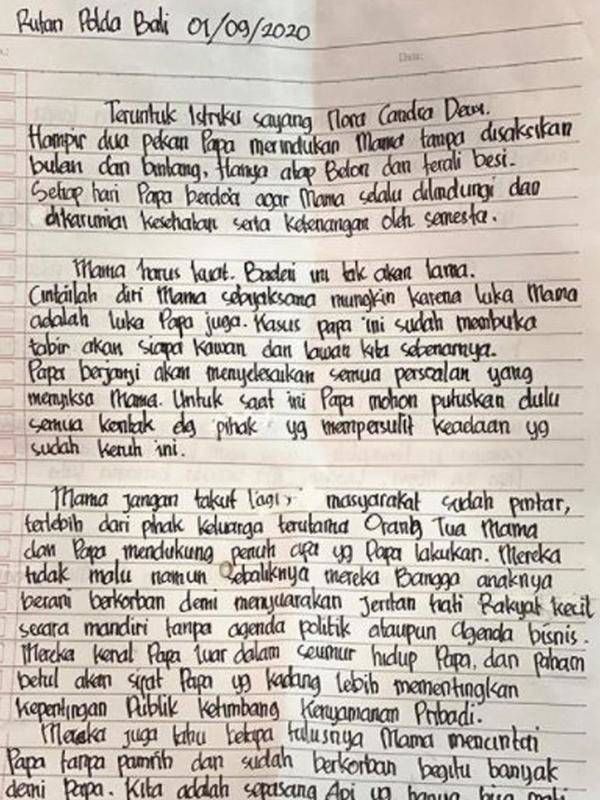 Rutan Polda Bali 01/09/2020
Date:
Teruntuk Istriku sayang Nora Candra Dewi.
Hampir dua pekan Papa merindukan Mama tanpa disaksikan
bulan dan bintang, Hanya atap Beton dan terali besi.
Setiap hari Papa berdo'a agar Mama selalu dilindungi dan
dikaruniai kesehatan serta ketenangan oleh semesta.
Mama harus kuat. Badai ini tak akan lama.
Cintailah diri Mama sebijaksana mungkin karena luka Mama
adalah luka Papa juga. Kasus papa ini sudah membuka
tabir akan siapa kawan dan lawan kita sebenarnya.
Papa berjanji akan menyelesaikan semua persoalan yang
menyiksa Mama. Untuk saat ini Papa mohon putuskan dulu
semua kontak dg pihak" yg mempersulit keadaan yg
sudah keruh ini.
Mama jangan takut lagi, masyarakat sudah pintar,
terlebih dari pihak keluarga terutama Orang Tua Mama
dan Papa mendukung penuh apa yg Papa lakukan. Mereka
tidak malu namun Sebaliknya mereka Bangga anaknya
berani berkorban demi menyuarakan Jeritan hati Rakyat kecil
secara mandiri tanpa agenda politik ataupun Agenda bisnis.
Mereka kenal Papa luar dalam seumur hidup Papa, dan paham
betul akan sifat Papa yg kadang lebih mementingkan
Kepentingan Publik ketimbang Kenyamanan Pribadi.
Mereka juga tahu betapa tulusnya Mama mencintai
Papa tanpa pamrih dan sudah berkorban begitu banyak
demi Papa. Kita adalah sepasang Api yg hanya bisa mati